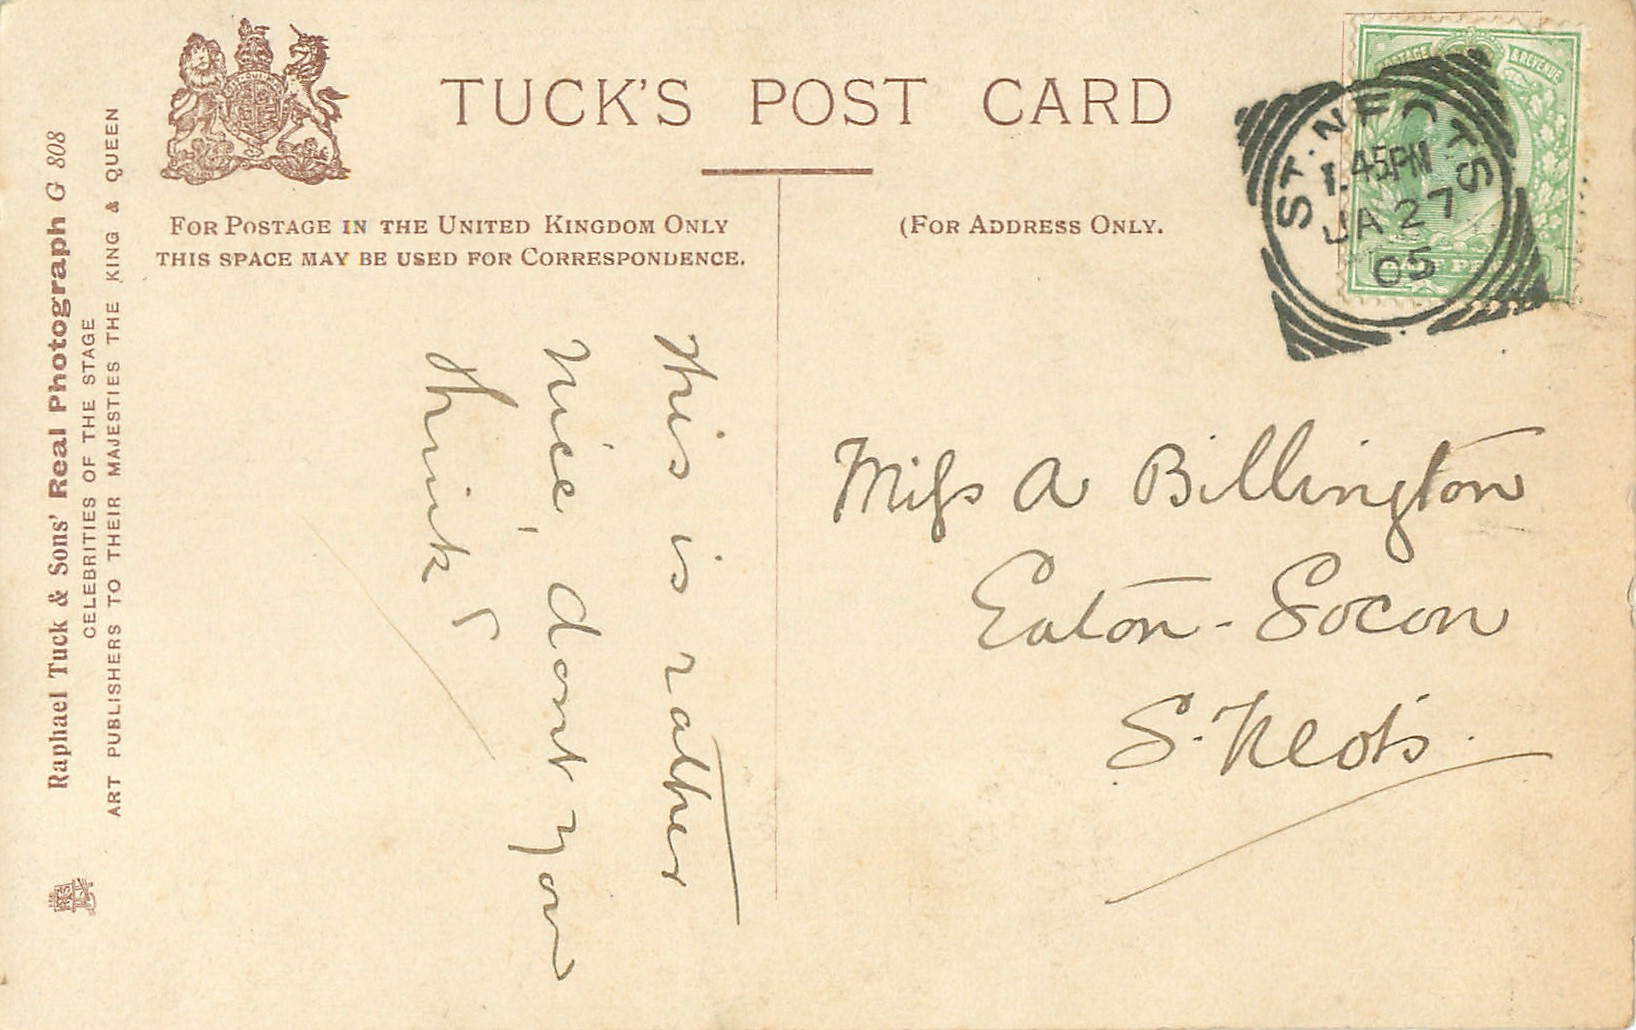 TUCK'S POST CARD
FOR POSTAGE IN THE UNITED KINGDOM ONLY
THIS SPACE MAY BE USED FOR CORRESPONDENCE.
(FOR ADDRESS ONLY.
Raphael Tuck & Sons' Real Photograph G 808
CELEBRITIES OF THE STAGE
ART PUBLISHERS TO THEIR MAJESTIES THE KING & QUEEN
POSTAGE & REVENUE
ST. NEOTS
1.45PM
JA 27
05
This is rather
nice, dont you
think?
Miss A Billington
Eaton-Socon
S. Neots.